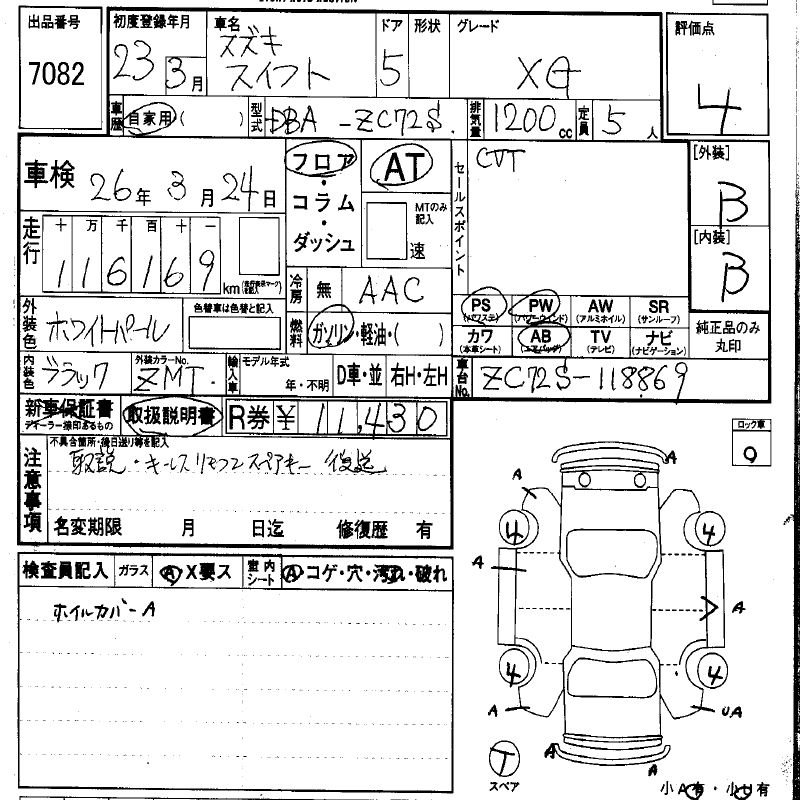 出品番号
7082
初度登録年月
23 3月
車名
スズキ
スイフト
ドア
5
形状
グレード
XG
評価点
4
車歴 自家用( )
型式 DBA-ZC72S
排気量 1200cc
定員 5人
車検 26年3月24日
走行
十 万 千 百 十 一
1 1 6 1 6 9
km(走行表示マークを記入)
フロア・コラム・ダッシュ
AT
MTのみ記入
速
冷房 無 AAC
燃料 ガソリン・軽油・( )
セールスポイント
CVT
[外装]
B
[内装]
B
PS(パワステ) PW(パワーウインド) AW(アルミホイル) SR(サンルーフ)
カワ(本革シート) AB(エアバッグ) TV(テレビ) ナビ(ナビゲーション)
純正品のみ丸印
外装色 ホワイトパール
色替車は色替と記入
内装色 ブラック
外装カラーNo.
ZMT
輸入車 モデル年式
年・不明
D車・並 右H・左H
車台No. ZC72S-118869
新車保証書
ディーラー捺印あるもの
取扱説明書
R券 ¥ 11,430
注意事項
不具合箇所・後日送り等を記入
取説・キーレスリモコンスペアキー 後送
名変期限 月 日迄 修復歴 有
ロック車
0
検査員記入 ガラス A X要ス 室内シート A コゲ・穴・汚れ・破れ
ホイルカバーA
A
A
4 4
A
A
4 4
A
UA
T
スペア
A
A
小A有・小U有